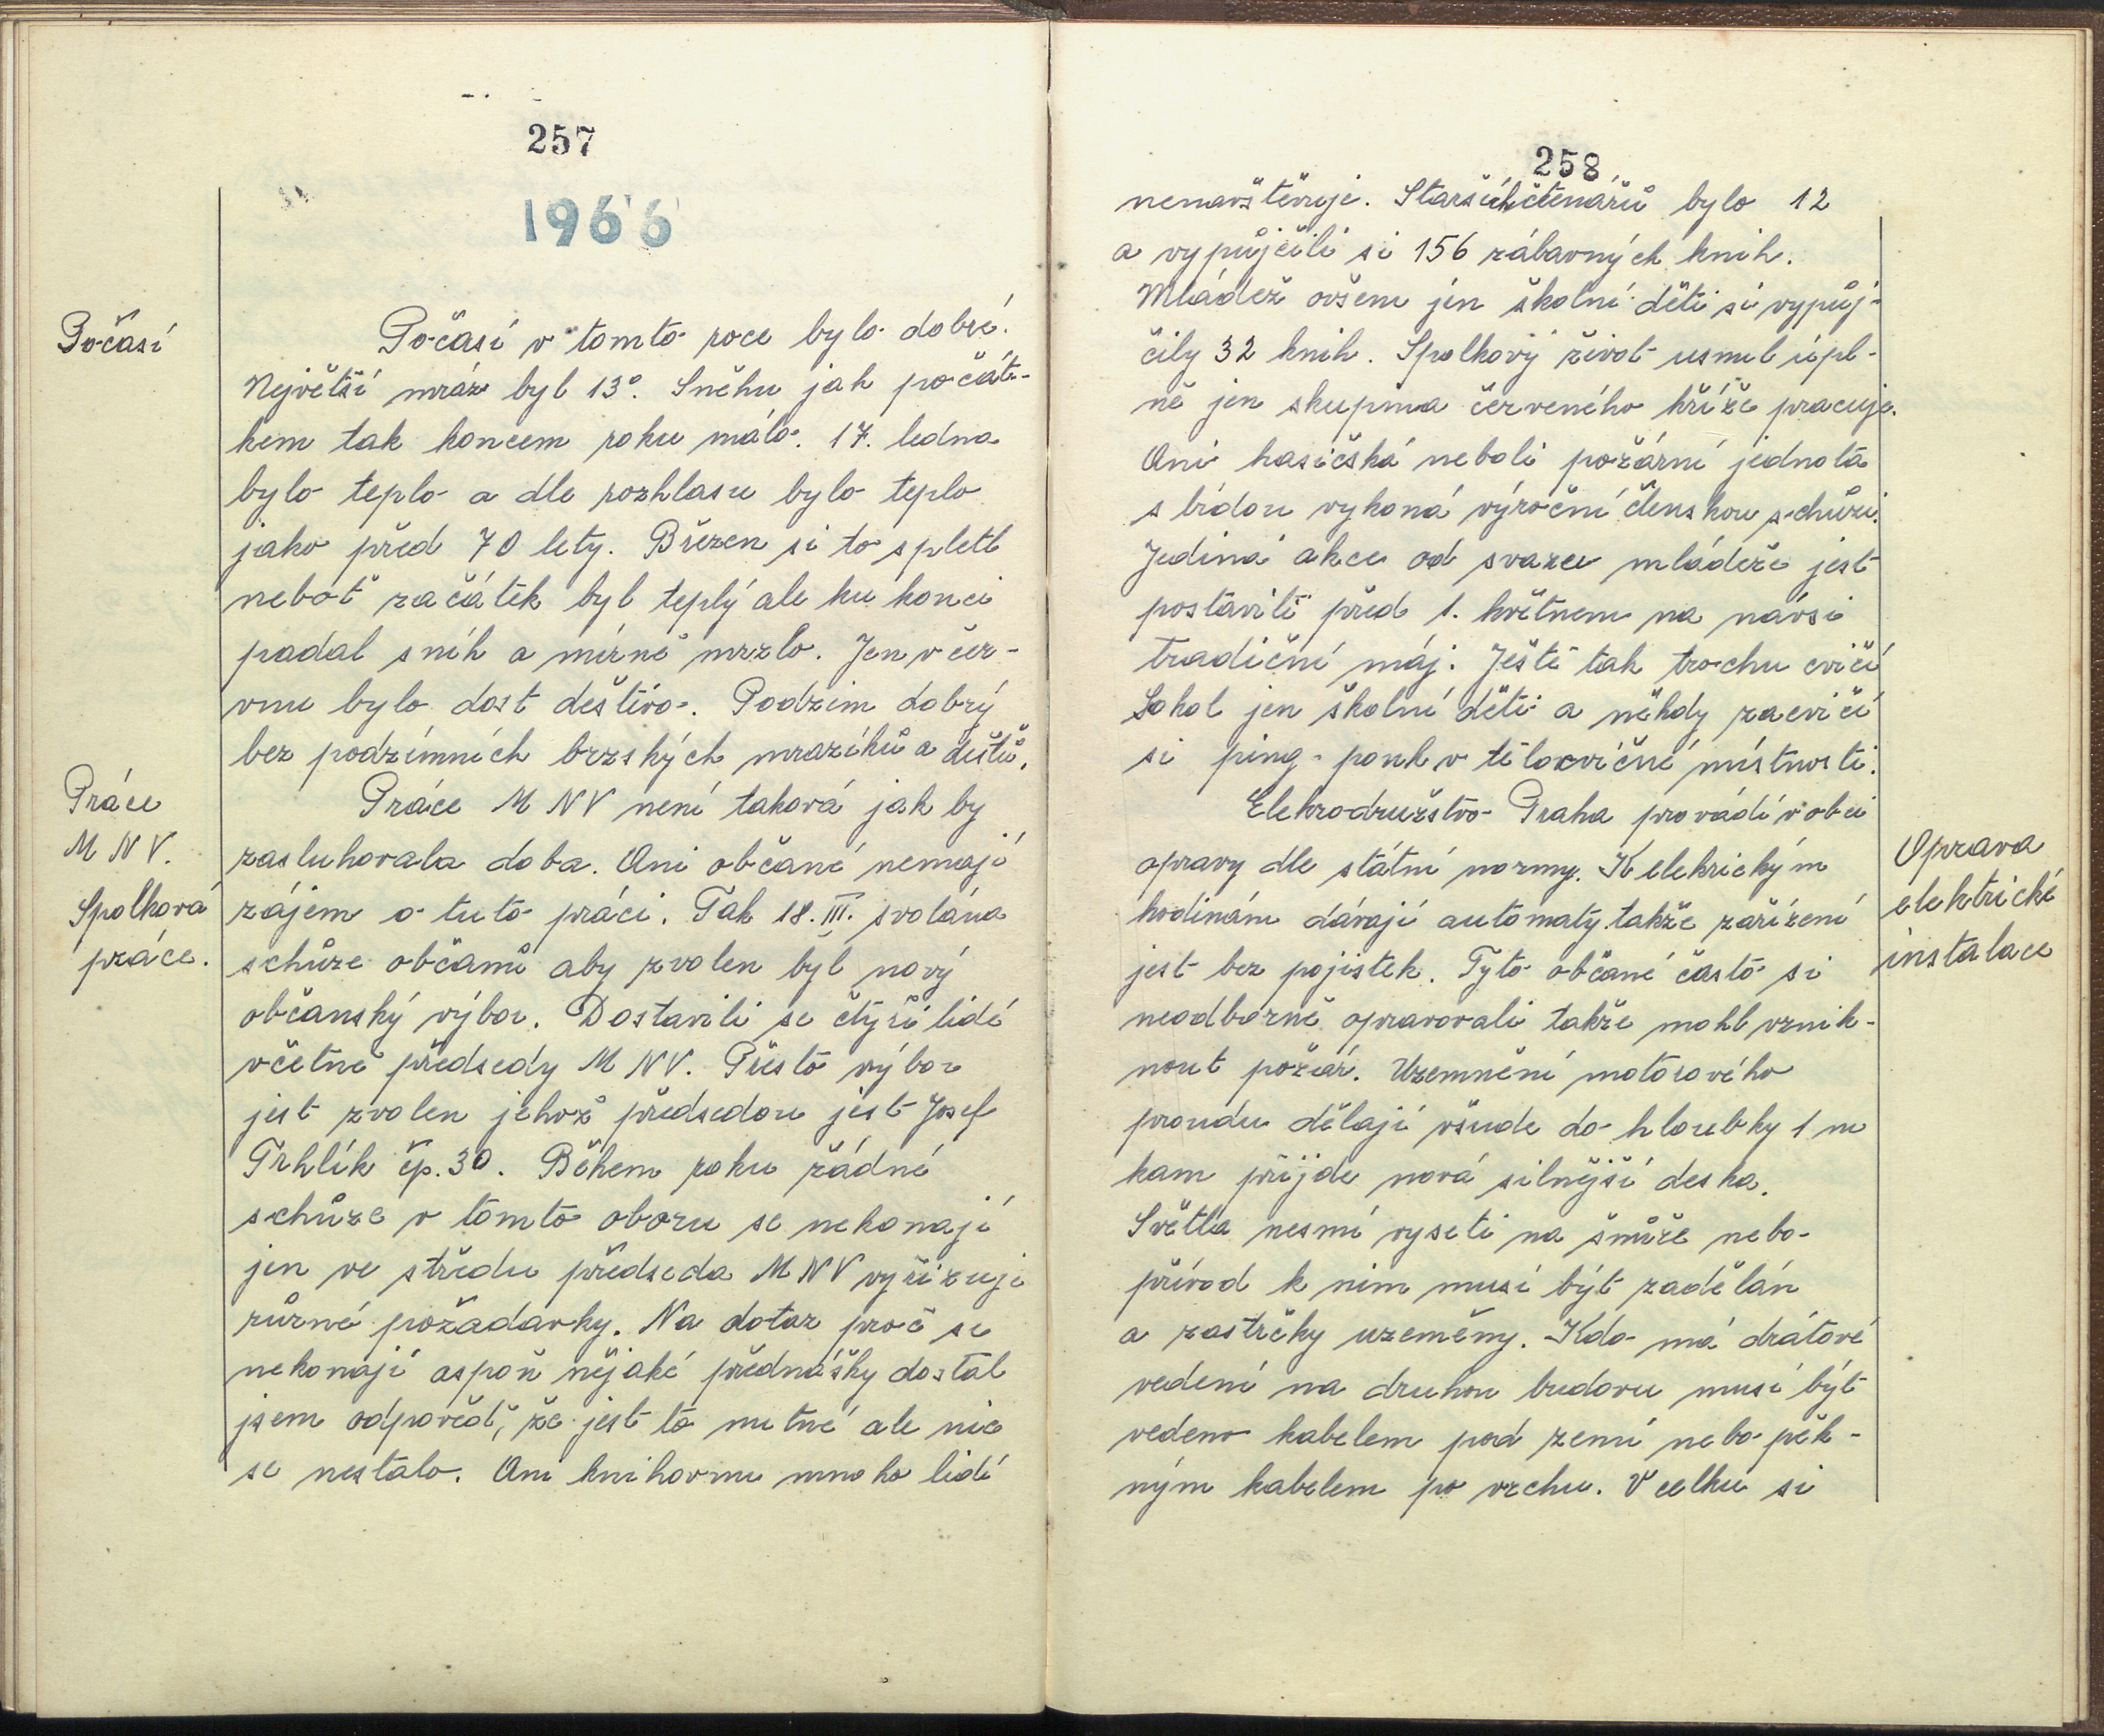 257
1966
Počasí
Počasí v tomto roce bylo dobré.
Největší mráz byl 13°. Sněhu jak počát-
kem tak koncem roku málo. 17. ledna
bylo teplo a dle rozhlasu bylo teplo
jako před 70 lety. Březen si to spletl
neboť začátek byl teplý ale ku konci
padal sníh a mírně mrzlo. Jen v čer-
vnu bylo dost deštivo. Podzim dobrý
bez podzimních brzských mrazíků a dešťů.
Práce
M NV.
Spolková
práce.
Práce M NV není taková jak by
zasluhovala doba. Ani občané nemají
zájem o tuto práci. Tak 18. III. svolána
schůze občanů aby zvolen byl nový
občanský výbor. Dostavili se čtyři lidé
včetně předsedy M NV. Přesto výbor
jest zvolen jehož předsedou jest Josef
Trhlík čp. 30. Během roku žádné
schůze v tomto oboru se nekonají
jen ve středu předseda M NV vyřizuje
různé požadavky. Na dotaz proč se
nekonají aspoň nějaké přednášky dostal
jsem odpověď, že jest to nutné ale nic
se nestalo. Ani knihovnu mnoho lidí
258
nenavštěvuje. Starších čtenářů bylo 12
a vypůjčili si 156 zábavných knih.
Mládež ovšem jen školní děti si vypůj-
čily 32 knih. Spolkový život usnul úpl-
ně jen skupina červeného kříže pracuje.
Ani hasičská neboli požární jednota
s bídou vykoná výroční členskou schůzi.
Jediná akce od svazu mládeže jest
postaviti před 1. květnem na návsi
tradiční máj. Ještě tak trochu cvičí
Sokol jen školní děti a někdy zacvičí
si ping-ponk v tělocvičné místnosti.
Elekrodružstvo Praha provádí v obci
opravy dle státní normy. K elekrickým
hodinám dávají automaty takže zařízení
jest bez pojistek. Tyto občané často si
neodborně opravovali takže mohl vznik-
nout požár. Uzemnění motorového
proudu dělají všude do hloubky 1 m
kam přijde nová silnější deska.
Světla nesmí vyseti na šnůře nebo
přívod k nim musí být zadělán
a zastrčky uzeměny. Kdo má drátové
vedení na druhou budovu musí být
vedeno kabelem pod zemí nebo pěk-
ným kabelem po vrchu. V celku si
Oprava
elektrické
instalace